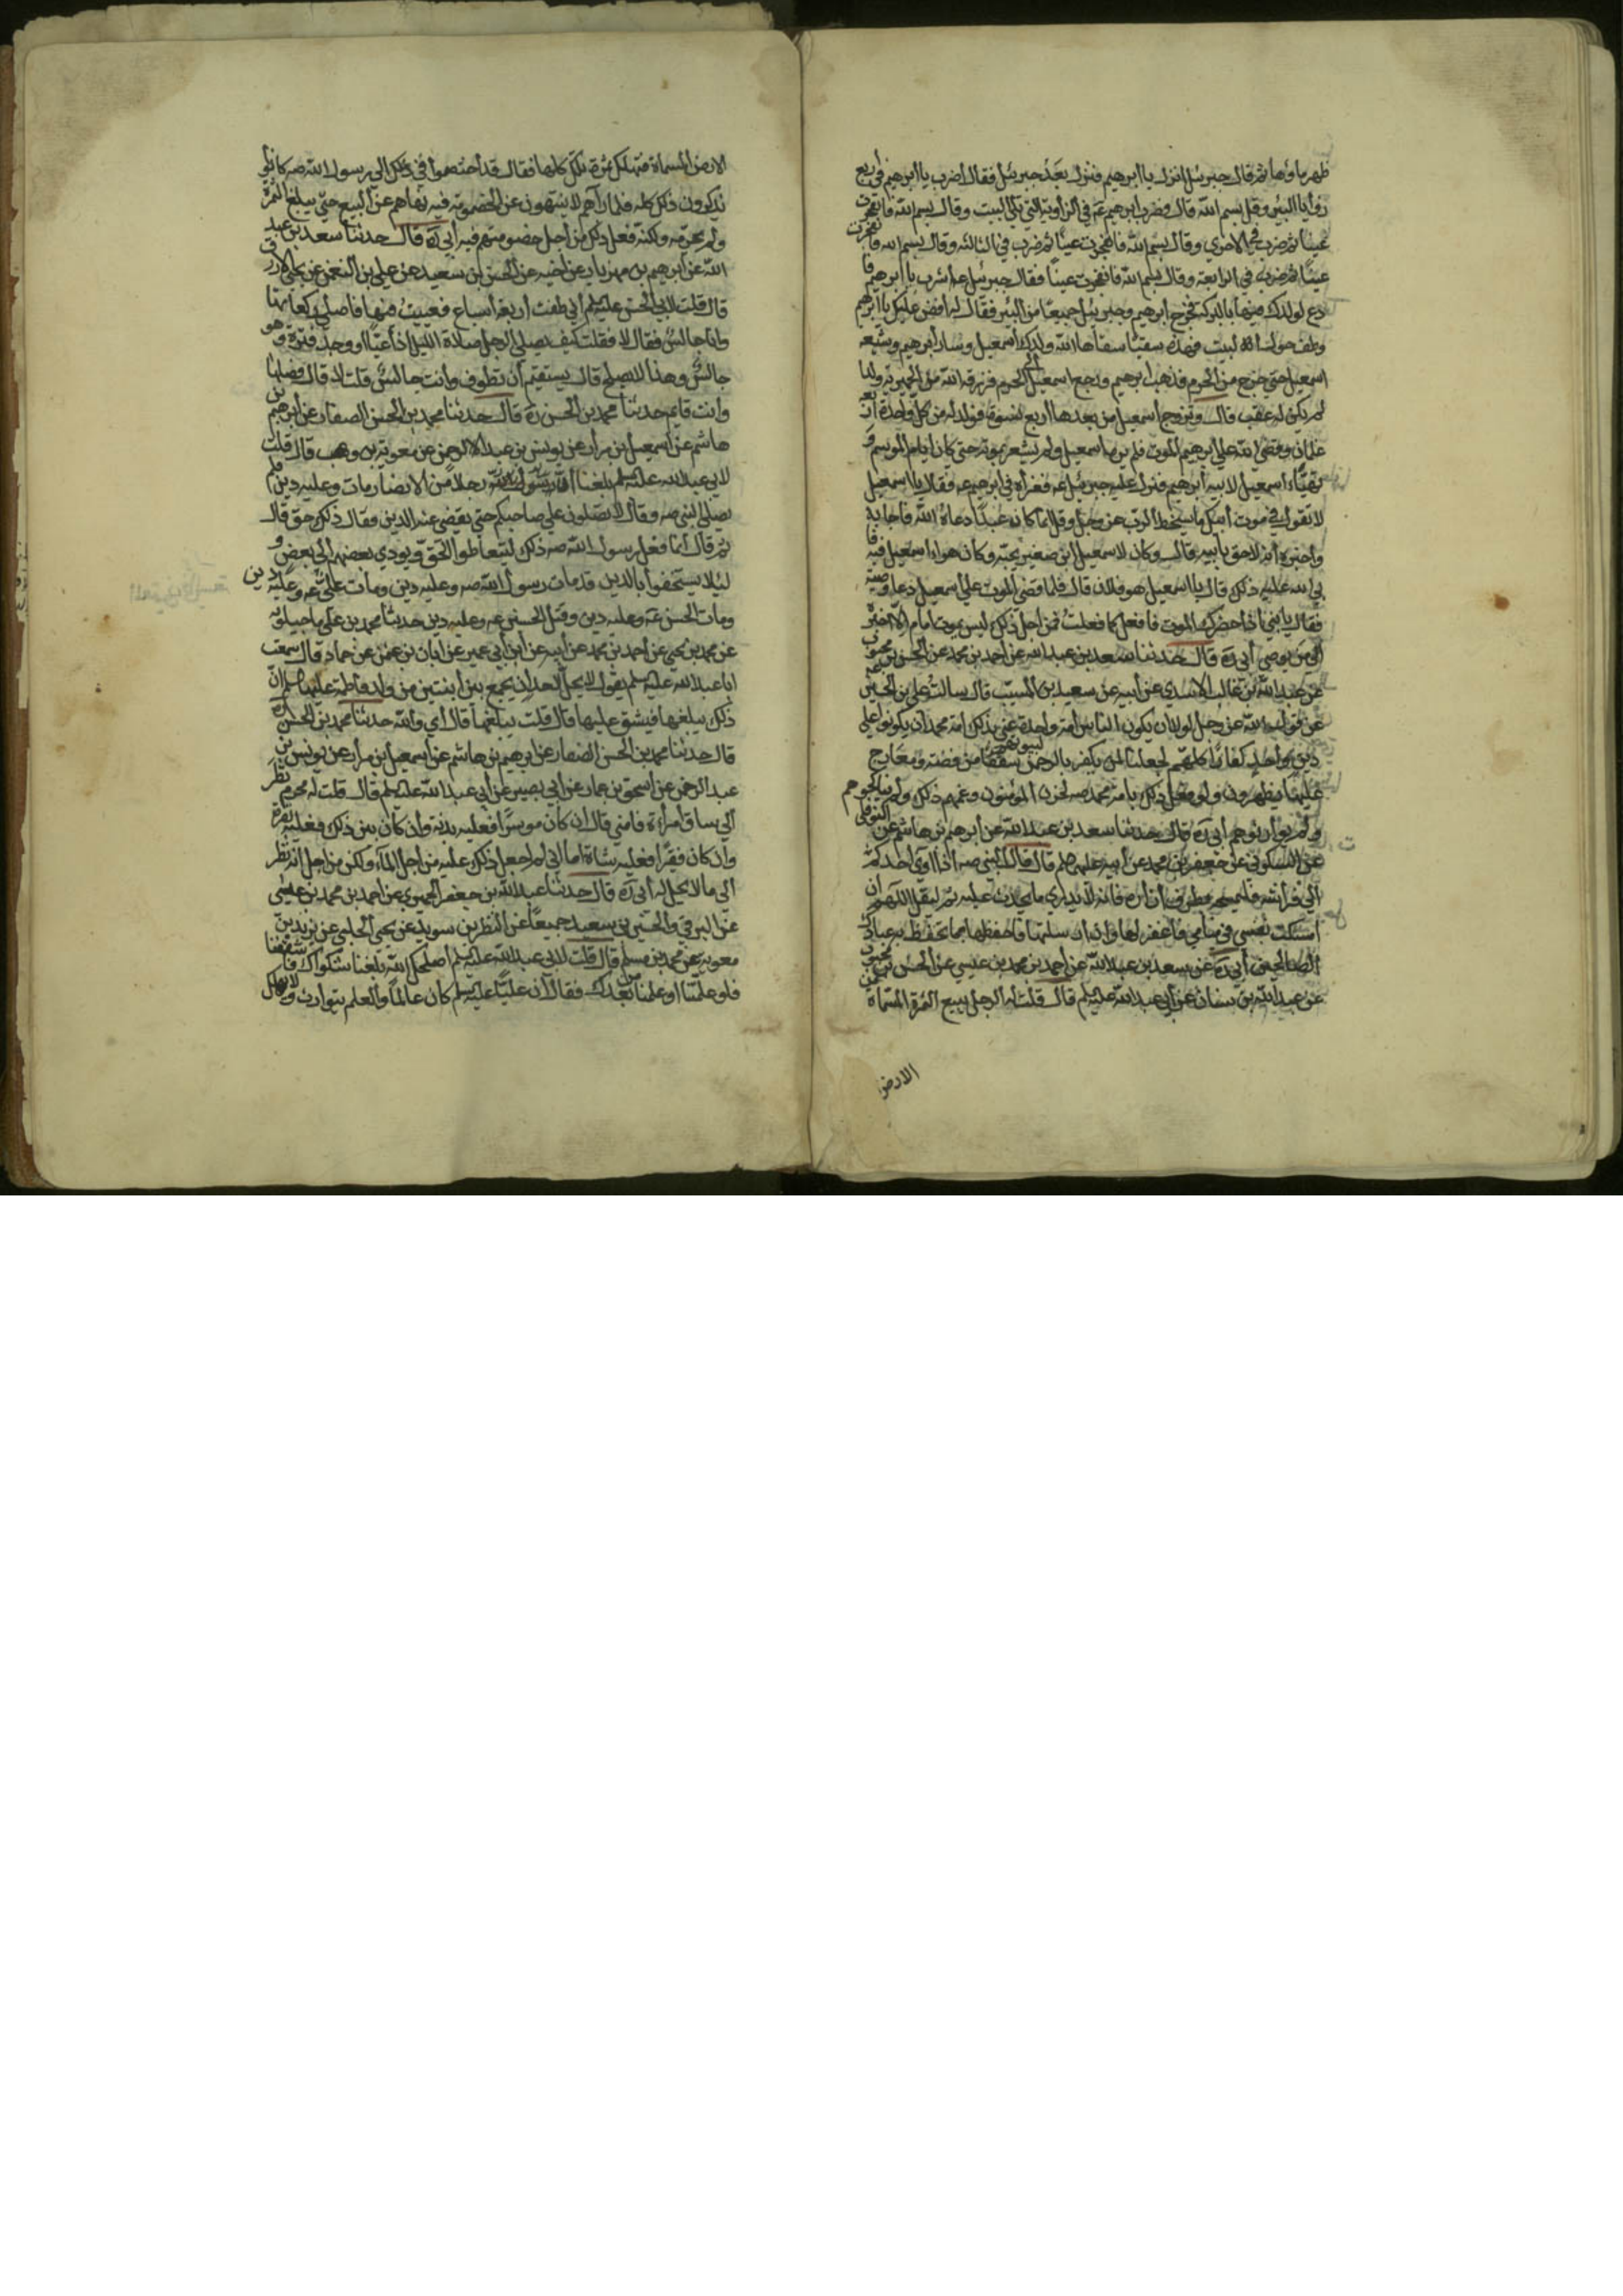 ظهر ماؤها ثم قال جبرئيل انزل يا ابرهيم فنزل بعد جبرئيل فقال اضرب يا ابرهيم في اربع
زوايا البئر وقل بسم الله قال فضرب ابرهيم عه في الزاوية التي تلي البيت وقال بسم الله فانفجرت
عينا ثم ضرب في الاخري وقال بسم الله فانفجرت عينا ثم ضرب في الثالثة وقال بسم الله فانفجرت
عينا ثم ضرب في الرابعة وقال بسم الله فانفجرت عينا فقال جبرئيل عه اشرب يا ابرهيم و
ادع لولدك فيها بالبركة فخرج ابرهيم وجبرئيل جميعا من البئر فقال له افض عليك يا ابرهيم
وطف حول البيت فهذه سقيا سقاها الله ولدك اسمعيل وسار ابرهيم وشيعه
اسمعيل حتي خرج من الحرم فذهب ابرهيم ورجع اسمعيل الي الحرم فرزقه الله من الحميرية ولدا
لم يكن له عقب قال وتزوج اسمعيل من بعدها اربع نسوة فولد له من كل واحدة اربعة
غلمان وقضي الله علي ابرهيم الموت فلم يره اسمعيل ولم يشعر بموته حتي كان ايام الموسم و
تهياء اسمعيل لابيه ابرهيم فنزل عليه جبرئيل عه فعزاه في ابرهيم عه فقال يا اسمعيل
لا تقول في موت ابيك ما يسخط الرب عز وجل وقال انما كان عبدا دعاه الله فاجابه
واخبره انه لاحق بابيه قال وكان لاسمعيل ابن صغير يحبه وكان هواء اسمعيل فيه فا
بي الله عليه ذلك قال يا اسمعيل هو فلان قال فلما قضي الموت علي اسمعيل دعا وصيه
فقال يا بني اذا حضرك الموت فافعل كما فعلت فمن اجل ذلك ليس يموت امام الا اخبره
الي من يوصي ابي ره قال حدثنا سعد بن عبد الله عن احمد بن محمد عن الحسن بن محبوب
عن عبد الله بن غالب الاسدي عن ابيه عن سعيد بن المسيب قال سالت علي بن الحسين
عن قول الله عز وجل لولا ان يكون الناس امة واحدة عني بذلك امة محمد ان يكونوا علي
دين واحد كفارا كلهم لجعلنا لمن يكفر بالرحمن لبيوتهم سقفا من فضة ومعارج
عليها يظهرون ولو فعل ذلك بامة محمد صه لحزن المؤمنون وغمهم ذلك ولم يناكحوهم
ولم يوارثوهم ابي ره قال حدثنا سعد بن عبد الله عن ابرهيم بن هاشم عن النوفلي
عن السكوني عن جعفر بن محمد عن ابيه عليهما السلم قال قال النبي صه اذا اوي احدكم
الي فراشه فليمسحه بطرف ازاره فانه لا يدري ما يحدث عليه ثم ليقل اللهم ان
امسكت نفسي في منامي فاغفر لها وان ارسلتها فاحفظها بما تحفظ به عبادك
الصالحين ابي ره عن سعد بن عبد الله عن احمد بن محمد بن عيسي عن الحسن بن محبوب
عن عبد الله بن سنان عن ابي عبد الله عليه السلم قال قلت له الرجل يبيع الثمرة المسماة
الارض
الارض المسماة فتهلك ثمرة تلك كلها فقال قد اختصموا في ذلك الي رسول الله صه كانوا
يذكرون ذلك كله فلما رآهم لا ينتهون عن الخصومة فيه نهاهم عن البيع حتي يبلغ الثمرة
ولم يحرمه ولكنه فعل ذلك من اجل خصومتهم فيه ابي ره قال حدثنا سعد بن عبد
الله عن ابرهيم بن مهزيار عن اخيه عن الحسن بن سعيد عن علي بن النعمن عن يحيي الازرق
قال قلت لابي الحسن عليه السلم اني طفت اربعة اسباع فعييت منها فاصلي ركعاتها
وانا جالس فقال لا فقلت كيف يصلي الرجل صلاة الليل اذا عيا او وجد فترة وهو
جالس وهذا لا يصلي قال يستقيم ان تطوف وانت جالس قلت لا قال فصلها
وانت قايم حدثنا محمد بن الحسن ره قال حدثنا محمد بن الحسن الصفار عن ابرهيم بن
هاشم عن اسمعيل بن مرار عن يونس بن عبد الرحمن عن معوية بن وهب قال قلت
لابي عبد الله عليه السلم بلغنا ان رجلا من الانصار مات وعليه دين فلم
يصلي النبي صه وقال لا تصلون علي صاحبكم حتي يقضي عنه الدين فقال ذلك حق قال
ثم قال انما فعل رسول الله صه ذلك ليتعاطوا الحق ويودي بعضهم الي بعض و
لئلا يستخفوا بالدين قد مات رسول الله صه وعليه دين ومات علي عه وعليه دين
ومات الحسن عه وعليه دين وقتل الحسين عه وعليه دين حدثنا محمد بن علي ماجيلويه
عن محمد بن يحيي عن احمد بن محمد عن ابيه عن ابن ابي عمير عن ابان بن عثمن عن حماد قال سمعت
ابا عبد الله عليه السلم يقول لا يحل لاحد ان يجمع بين ابنتين من ولد فاطمة عليها السلم ان
ذلك يبلغها فيشق عليها قال قلت يبلغها قال اي والله حدثنا محمد بن الحسن ره
قال حدثنا محمد بن الحسن الصفار عن ابرهيم بن هاشم عن اسمعيل بن مرار عن يونس بن
عبد الرحمن عن اسحق بن عمار عن ابي بصير عن ابي عبد الله عليه السلم قال قلت له محرم نظر
الي ساق امراة فامني قال ان كان موسرا فعليه بدنة وان كان بين ذلك فعليه بقرة
وان كان فقيرا فعليه شاة اما اني لم اجعل ذلك عليه من اجل المآء ولكن من اجل انه نظر
الي ما لا يحل له ابي ره قال حدثنا عبد الله بن جعفر الحميري عن احمد بن محمد بن عيسي
عن البرقي والحسين بن سعيد جميعا عن النظر بن سويد عن يحيي الحلبي عن بريد بن
معوية عن محمد بن مسلم قال قلت لابي عبد الله عليه السلم اصلحك الله بلغنا شكواك فاشفقنا
فلو علمتنا او علمنا من بعدك فقال ان عليا عليه السلم كان عالما والعلم يتوارث ولا يهلك